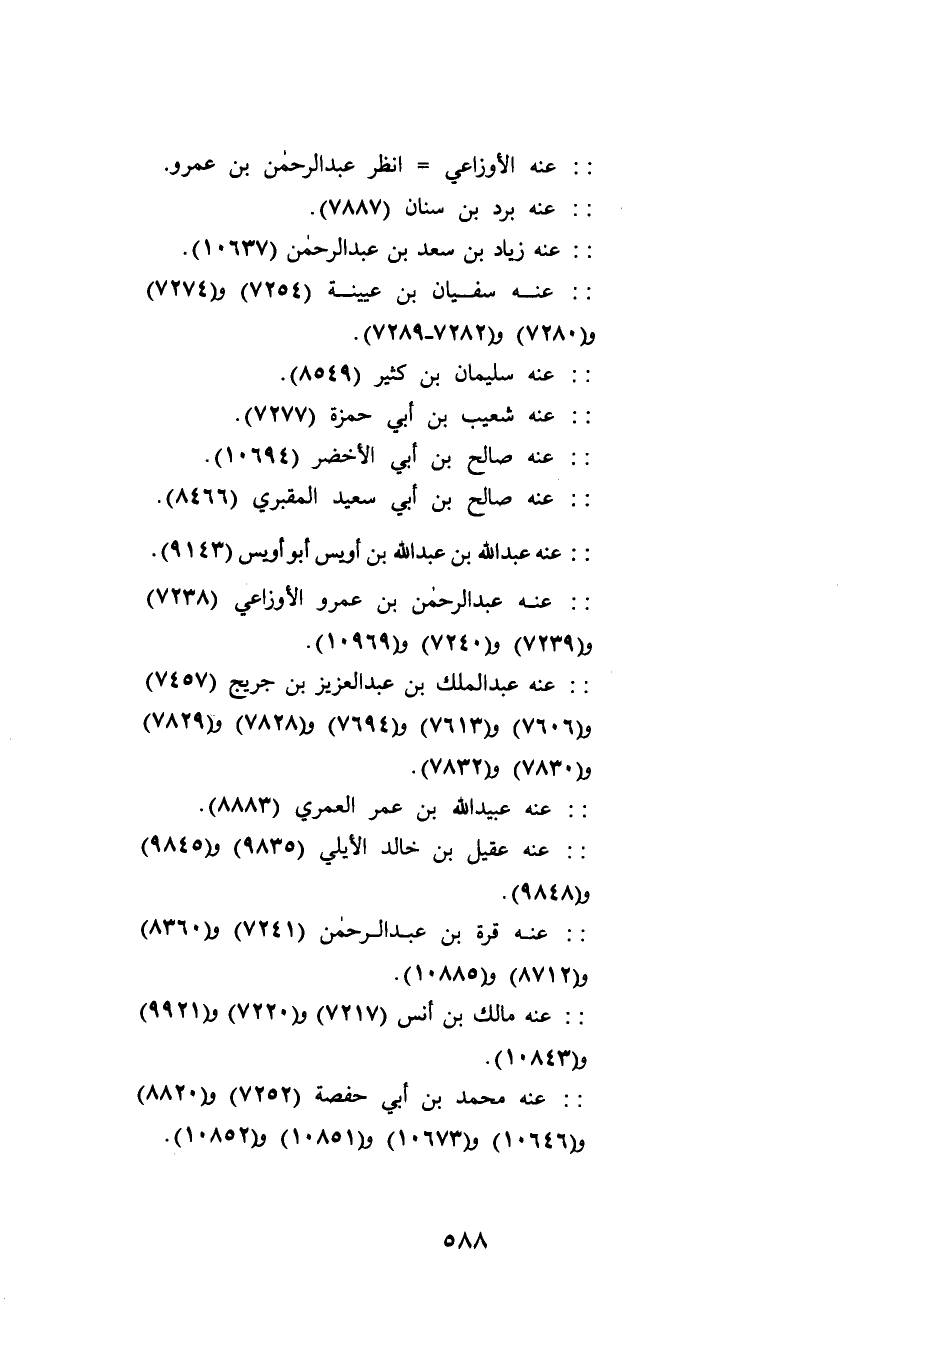 :: عنه الأوزاعي = انظر عبدالرحمٰن بن عمرو.
:: عنه برد بن سنان (٧٨٨٧).
:: عنه زياد بن سعد بن عبدالرحمٰن (١٠٦٣٧).
:: عنـــه سفـــيان بن عيينـــة (٧٢٥٤) و(٧٢٧٤)
و(٧٢٨٠) و(٧٢٨٢-٧٢٨٩).
:: عنه سليمان بن كثير (٨٥٤٩).
:: عنه شعيب بن أبي حمزة (٧٢٧٧).
:: عنه صالح بن أبي الأخضر (١٠٦٩٤).
:: عنه صالح بن أبي سعيد المقبري (٨٤٦٦).
:: عنه عبدالله بن عبدالله بن أويس أبو أويس (٩١٤٣).
:: عنـه عبدالرحمٰن بن عمرو الأوزاعي (٧٢٣٨)
و(٧٢٣٩) و(٧٢٤٠) و(١٠٩٦٩).
:: عنه عبدالملك بن عبدالعزيز بن جريج (٧٤٥٧)
و(٧٦٠٦) و(٧٦١٣) و(٧٦٩٤) و(٧٨٢٨) و(٧٨٢٩)
و(٧٨٣٠) و(٧٨٣٢).
:: عنه عبيدالله بن عمر العمري (٨٨٨٣).
:: عنه عقيل بن خالد الأيلي (٩٨٣٥) و(٩٨٤٥)
و(٩٨٤٨).
:: عنـه قرة بن عبـدالـرحمٰن (٧٢٤١) و(٨٣٦٠)
و(٨٧١٢) و(١٠٨٨٥).
:: عنه مالك بن أنس (٧٢١٧) و(٧٢٢٠) و(٩٩٢١)
و(١٠٨٤٣).
:: عنه محمد بن أبي حفصة (٧٢٥٢) و(٨٨٢٠)
و(١٠٦٤٦) و(١٠٦٧٣) و(١٠٨٥١) و(١٠٨٥٢).
٥٨٨